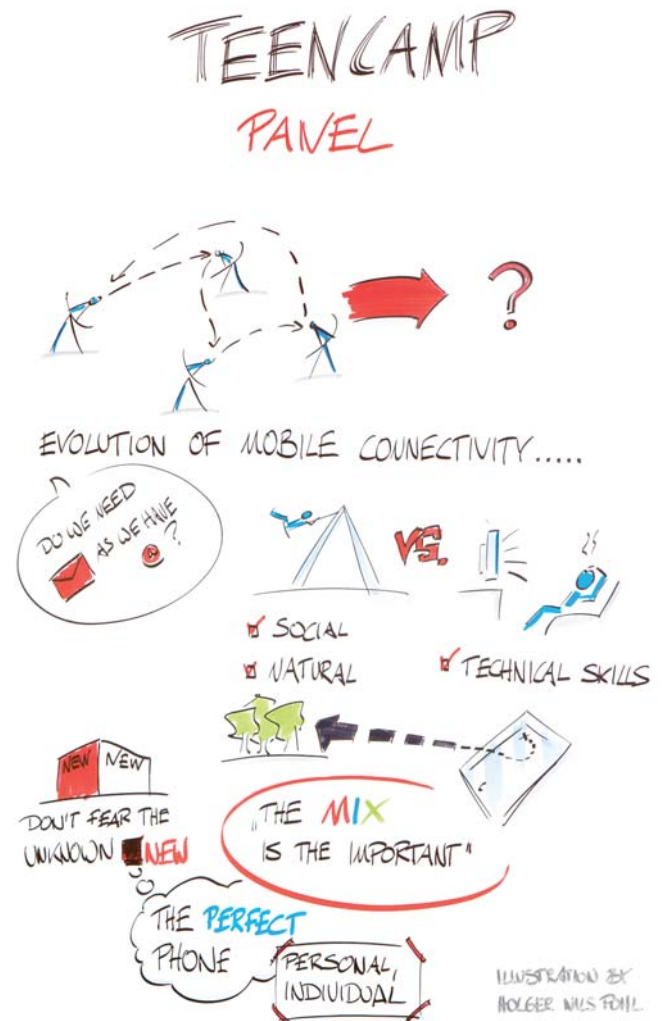 TEENCAMP
PANEL
?
EVOLUTION OF MOBILE CONNECTIVITY.....
DO WE NEED
AS WE HAVE
@ ?
VS.
SOCIAL
NATURAL
TECHNICAL SKILLS
NEW NEW
DON'T FEAR THE
UNKNOWN NEW
"THE MIX
IS THE IMPORTANT"
THE PERFECT
PHONE
PERSONAL,
INDIVIDUAL
ILLUSTRATION BY
HOLGER NILS POHL